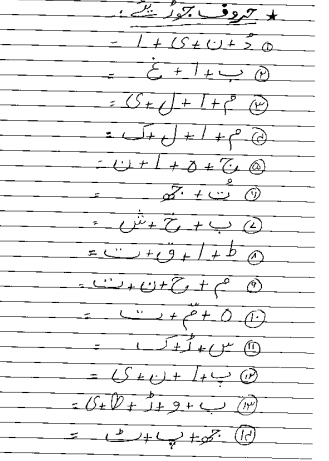 ★ حروف جوڑیئے :
① دُ + ن + ی + ا =
② ب + ا + غ =
③ م + ا + ل + ی =
④ م + ا + ل + ک =
⑤ ج + ہ + ا + ن =
⑥ تُ + جھ =
⑦ ب + خ + ش =
⑧ ط + ا + ق + ت =
⑨ م + ح + ن + ت =
⑩ ہ + مّ + ت =
⑪ س + ڑ + ک =
⑫ پ + ا + ن + ی =
⑬ ب + و + ڑ + ھ + ی =
⑭ جھ + پ + ٹ =